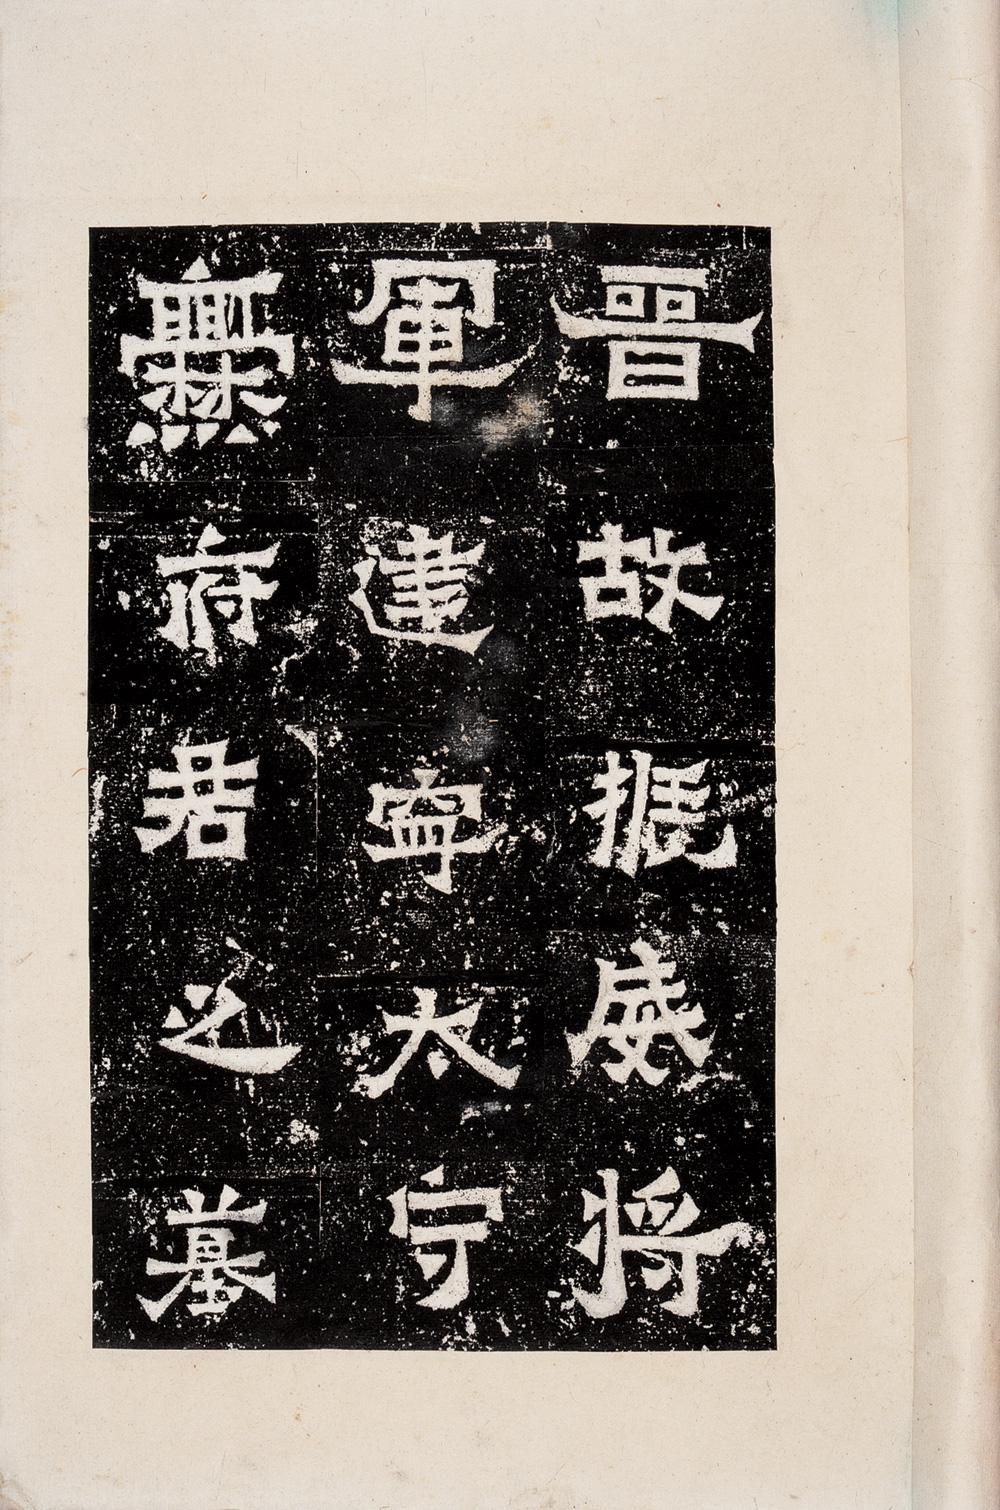 晉故振威將
軍建寧太守
爨府君之墓